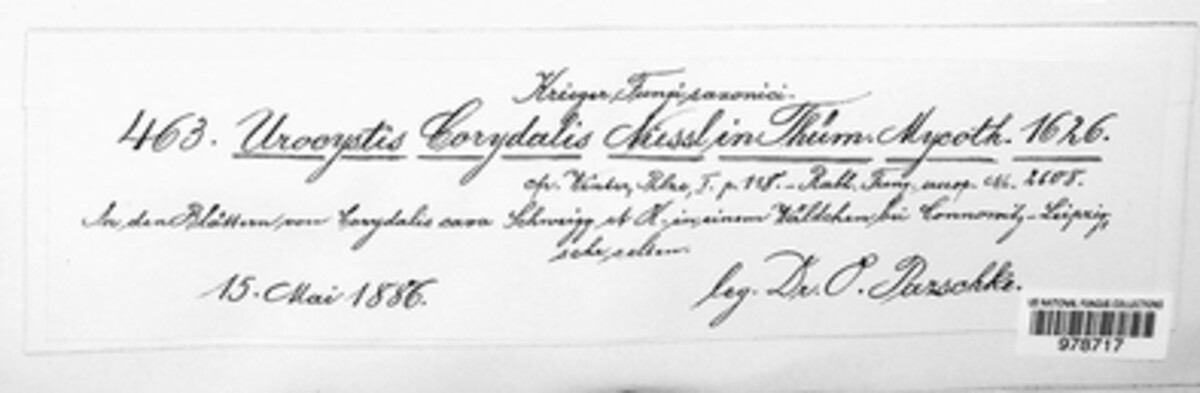 Krieger, Fungi saxonici.
463. Urocystis Corydalis Niessl in Thüm. Mycoth. 1626.
cfr. Winter, Pilze, I. p. 118. – Rabh. Fung. europ. No. 2608.
An den Blättern von Corydalis cava Schweigg et K. in einem Wäldchen bei Connewitz-Leipzig,
sehr selten.
15. Mai 1886.
leg. Dr. O. Pazschke.
US NATIONAL FUNGUS COLLECTIONS
978717